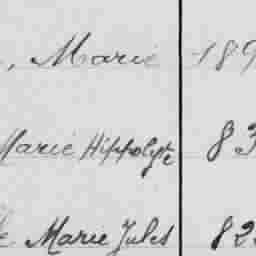 , Marie 189
Marie Hippolyte 83
Marie Jules 82